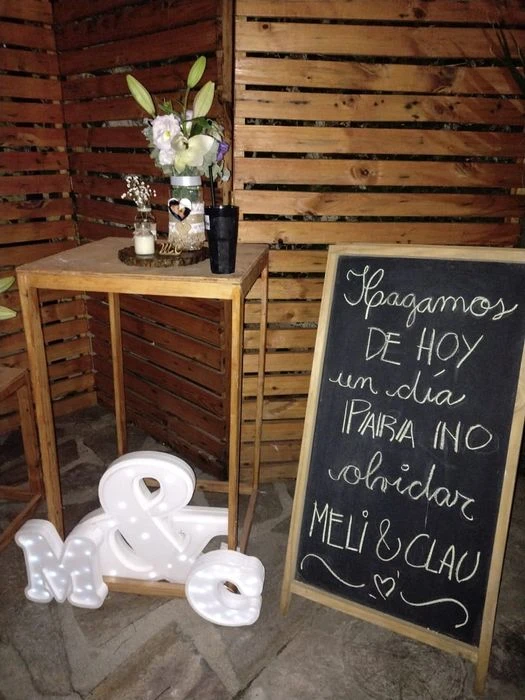 Hagamos
DE HOY
un día
PARA NO
olvidar
MELI & CLAU
M & C